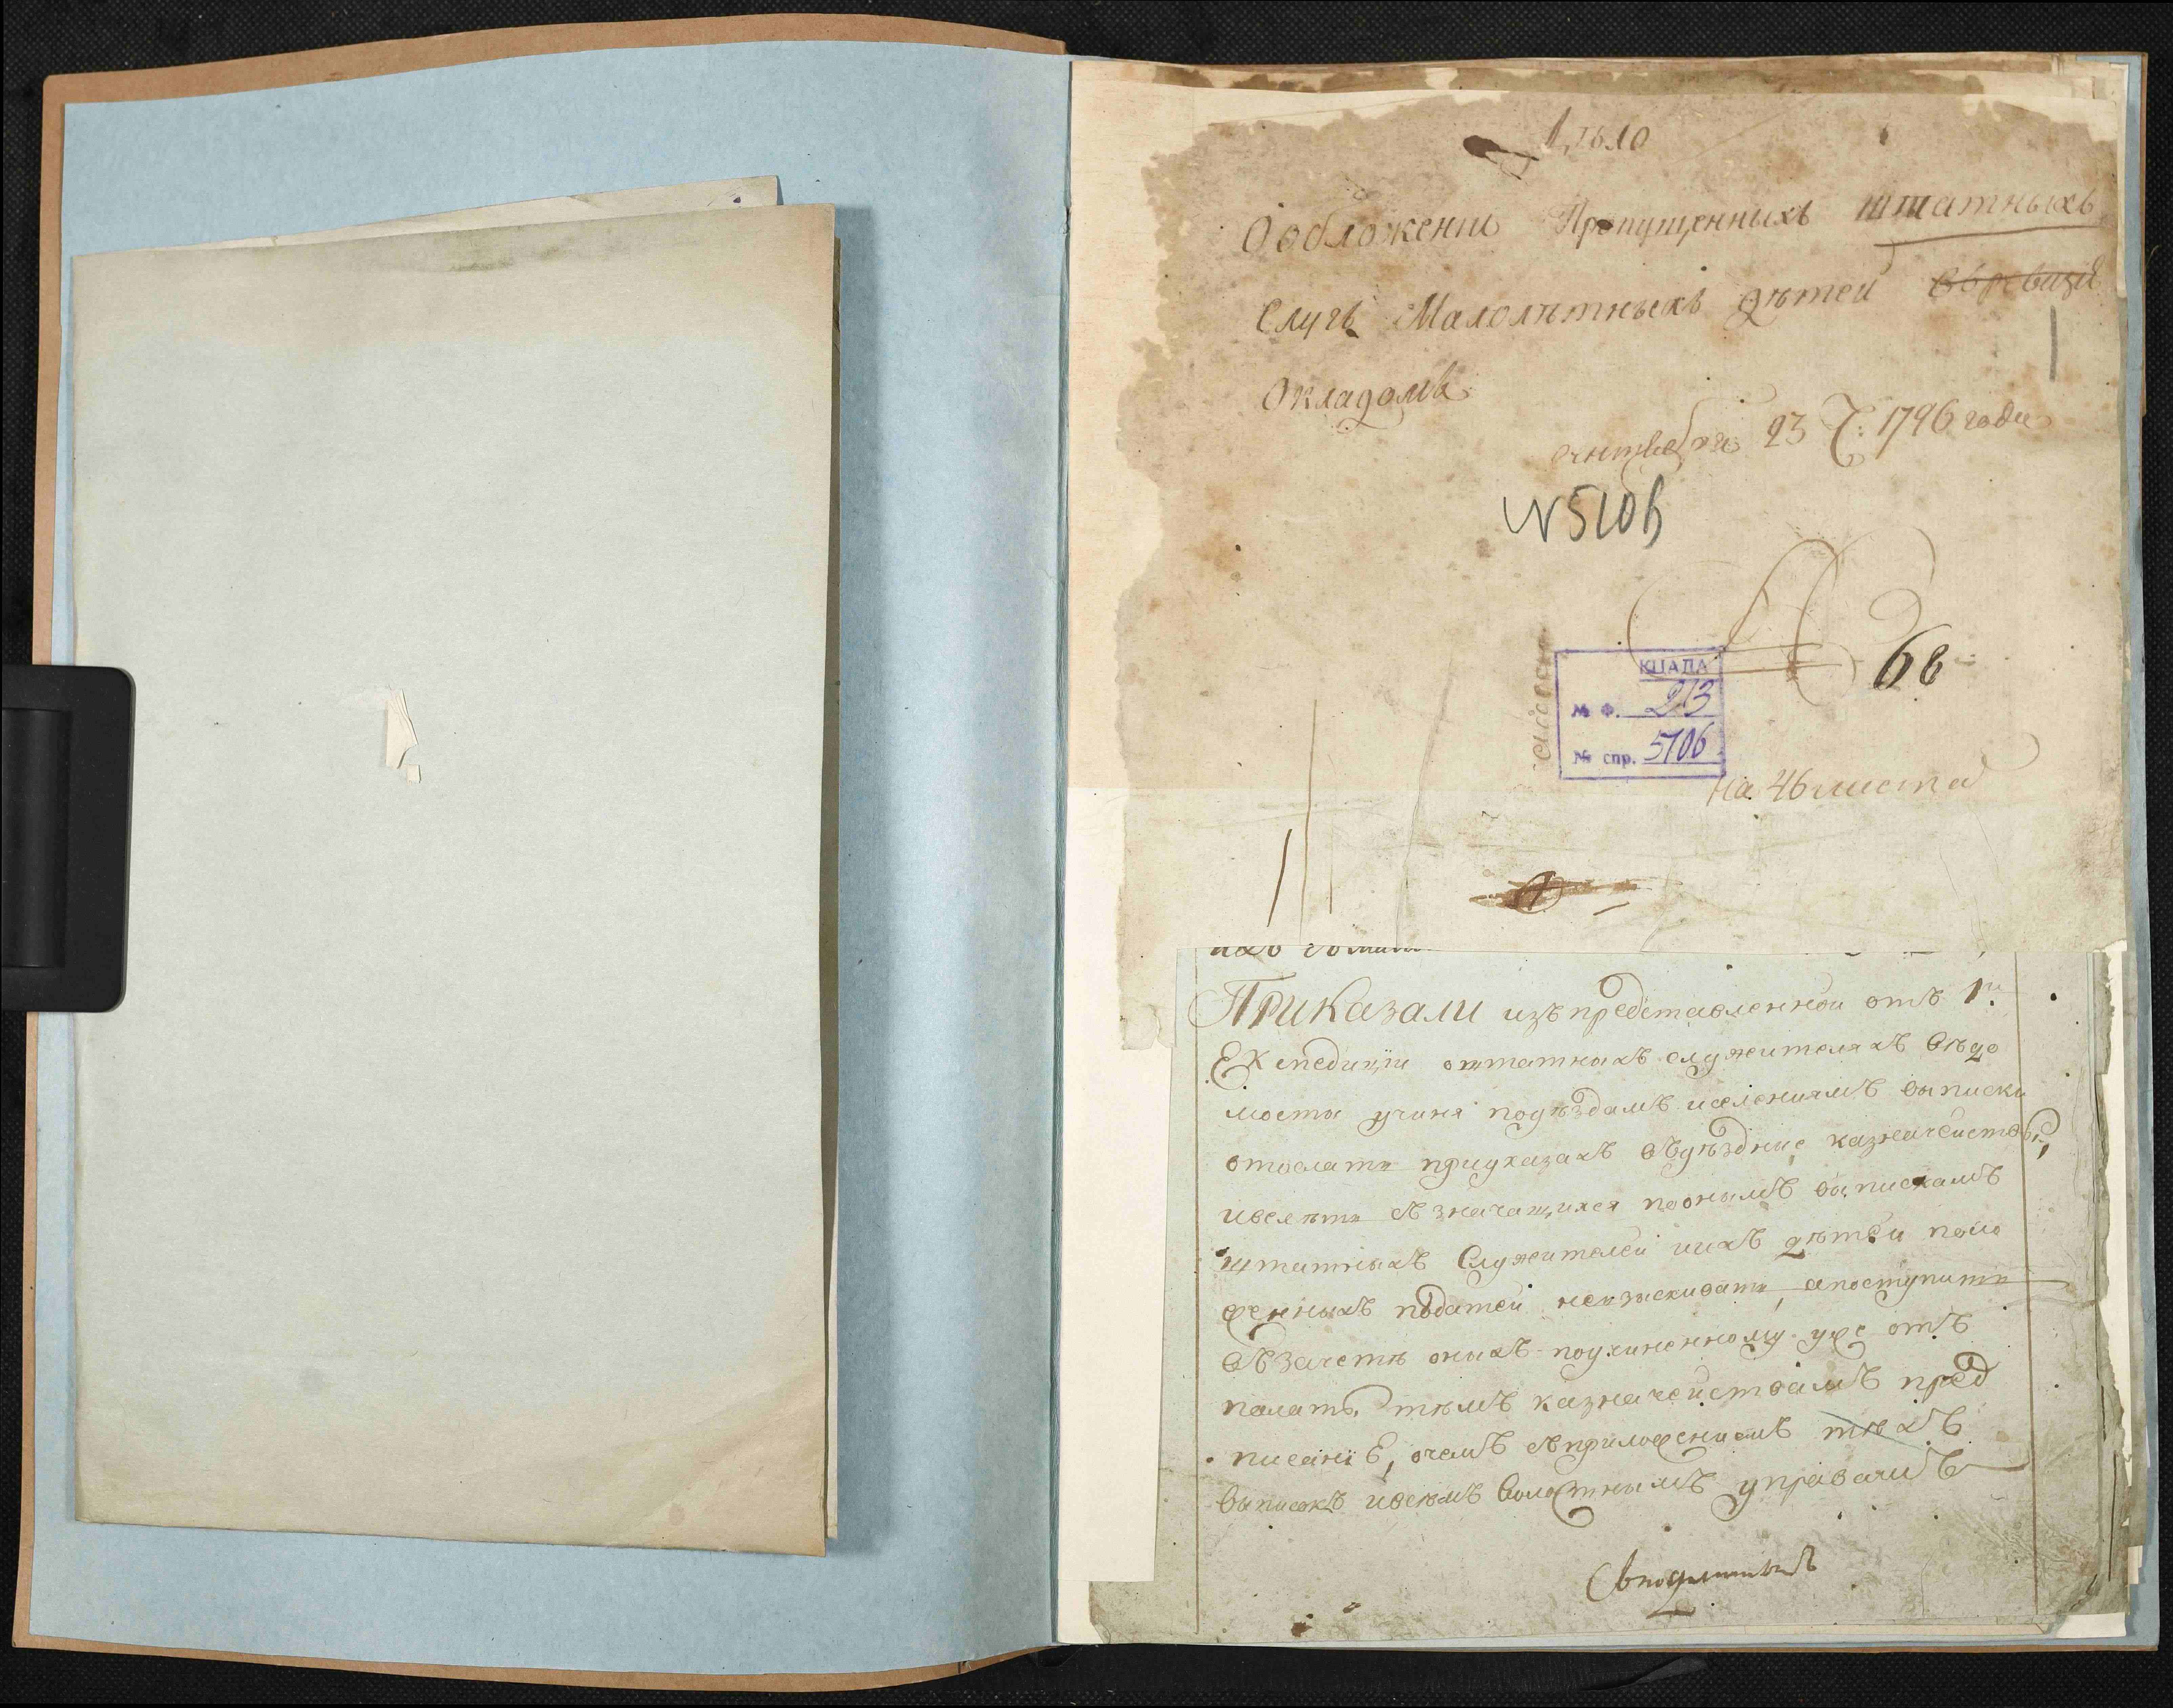 Дѣло
О обложении Пропущенныхъ штатныхъ
Слугъ Малолѣтныхъ дѣтей въревизи
Окладомъ
23 Ч: 1796 года
N 5106
68
КЦАДА
№ Ф. 213
№ спр. 5106
на 46 листа
ихъ
Приказали изъ представленной отъ 1й
Експедиціи оштатныхъ служителяхъ вѣдо
мости учиня поуѣздамъ иселениямъ выписки
отослать приуказахъ въуѣздные казначействы,
ивелѣть съ значащихся поонымъ выпискамъ
штатныхъ Служителей иихъ дѣтей поло
женныхъ податей невзыскивать, апоступить
въ зачетѣ оныхъ поучиненному уже отъ
палаты тѣмъ казначействамъ пред
писаніе, очемъ съприложениемъ тѣхъ
выписокъ ивсѣмъ Волостнымъ